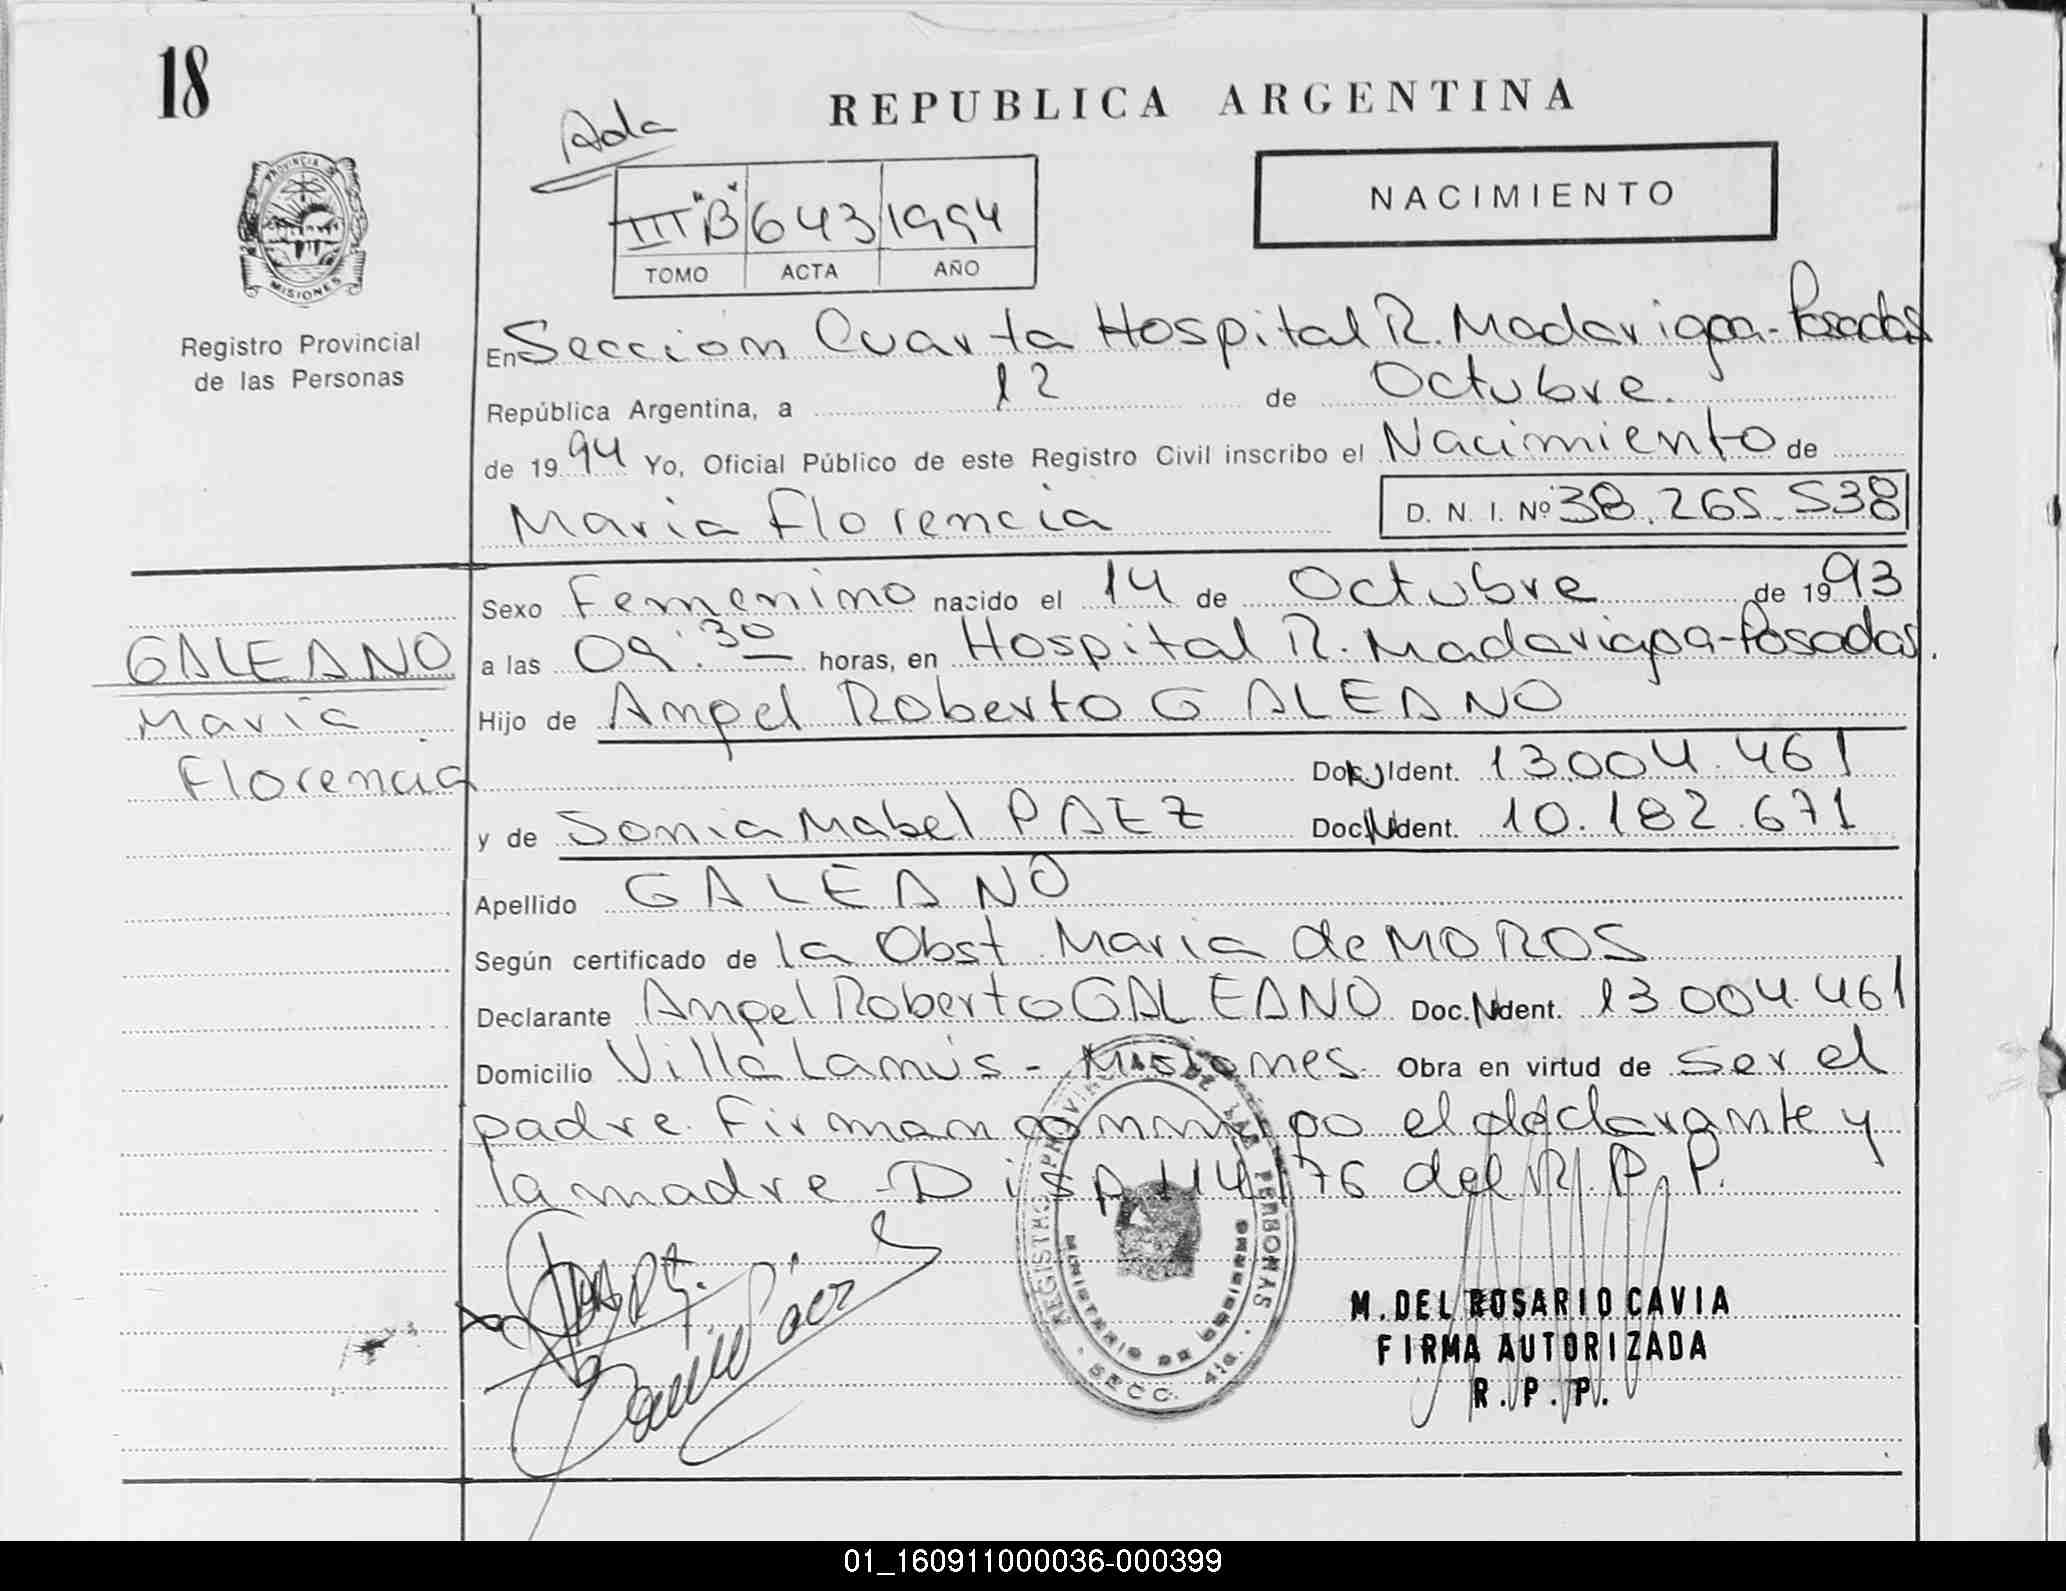 18
REPUBLICA ARGENTINA
Ada
NACIMIENTO
III "B" 643 1994
TOMO ACTA AÑO
PROVINCIA
MISIONES
Registro Provincial
de las Personas
En Seccion Cuarta Hospital R. Madariaga - Posadas
República Argentina, a 12 de Octubre.
de 1994 Yo, Oficial Público de este Registro Civil inscribo el Nacimiento de
Maria Florencia D. N. I. Nº 38.265.538
Sexo Femenino nacido el 14 de Octubre de 1993
GALEANO
a las 09:30 horas, en Hospital R. Madariaga - Posadas.
Maria
Hijo de Angel Roberto GALEANO
Florencia
Ident. 13.004.461
y de Sonia Mabel PAEZ Doc. Ident. 10.182.671
Apellido GALEANO
Según certificado de la Obst. Maria de MOROS
Declarante Angel Roberto GALEANO Doc. Ident. 13.004.461
Domicilio Villa Lanús - Misiones. Obra en virtud de ser el
padre. Firman conmigo el declarante y
la madre - Disp 114/76 del R. P. P.
REGISTRO PROVINCIAL DE LAS PERSONAS
MINISTERIO DE GOBIERNO
SECC. 4ta.
Paez
M. DEL ROSARIO CAVIA
FIRMA AUTORIZADA
R. P. P.
01_160911000036-000399